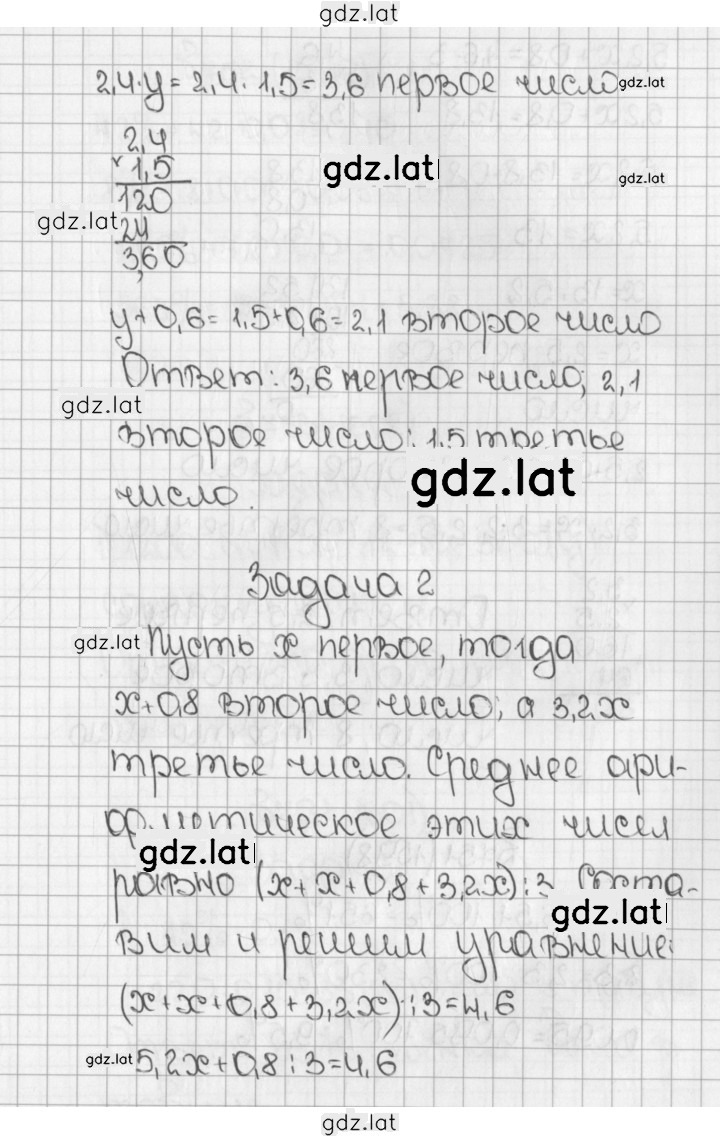 gdz.lat
2,4·y = 2,4 · 1,5 = 3,6 первое число gdz.lat
2,4
× 1,5 gdz.lat gdz.lat
120
gdz.lat 24
3,60
y + 0,6 = 1,5 + 0,6 = 2,1 второе число
Ответ: 3,6 первое число; 2,1
gdz.lat
второе число; 1,5 третье
gdz.lat
число.
Задача 2
gdz.lat Пусть x первое, тогда
x+0,8 второе число; а 3,2x
третье число. Среднее ари-
фметическое этих чисел
gdz.lat
равно (x+x+0,8+3,2x):3. Соста-
gdz.lat
вим и решим уравнение:
(x+x+0,8+3,2x):3=4,6
gdz.lat 5,2x+0,8:3=4,6
gdz.lat